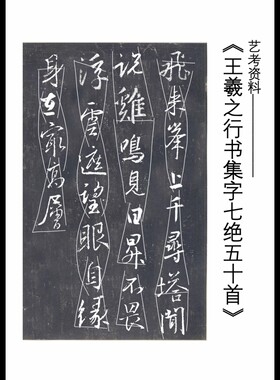 艺考资料————
《王羲之行书集字七绝五十首》
飛来峯上千尋塔聞
説雞鳴見日昇不畏
浮雲遮望眼自緣
身在最高層